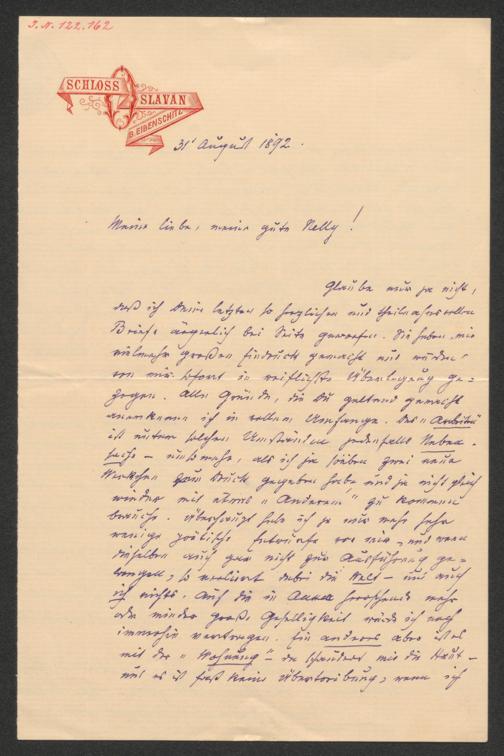 J. N. 122.162
SCHLOSS
SLAVAN
B. EIBENSCHITZ
31' August 1892.
Meine liebe, meine gute Nelly!
Glaube nur ja nicht,
daß ich Deine letzten so herzlichen und theilnahmsvollen
Briefe ärgerlich bei Seite geworfen. Sie haben mir
vielmehr großen Eindruck gemacht und wurden
von mir sofort in reiflichste Überlegung ge-
zogen. Alle Gründe, die Du geltend gemacht
anerkenne ich in vollem Umfange. Das "Arbeiten"
ist unter solchen Umständen jedenfalls Neben-
sache – umsomehr, als ich ja soeben zwei neue
Werkchen zum Druck gegeben habe und ja nicht gleich
wieder mit etwas "Anderem" zu kommen
brauche. Überhaupt habe ich ja nur mehr sehr
wenige poëtische Entwürfe vor mir – und wenn
dieselben auch gar nicht zur Ausführung ge-
langen, so verliert dabei die Welt – und auch
ich nichts. Auch die in herrschende mehr
oder minder große Geselligkeit würde ich noch
immerhin vertragen. Ein anderes aber ist es
mit der "Wohnung" – da schaudert mir die Haut –
und es ist fast keine Übertreibung, wenn ich